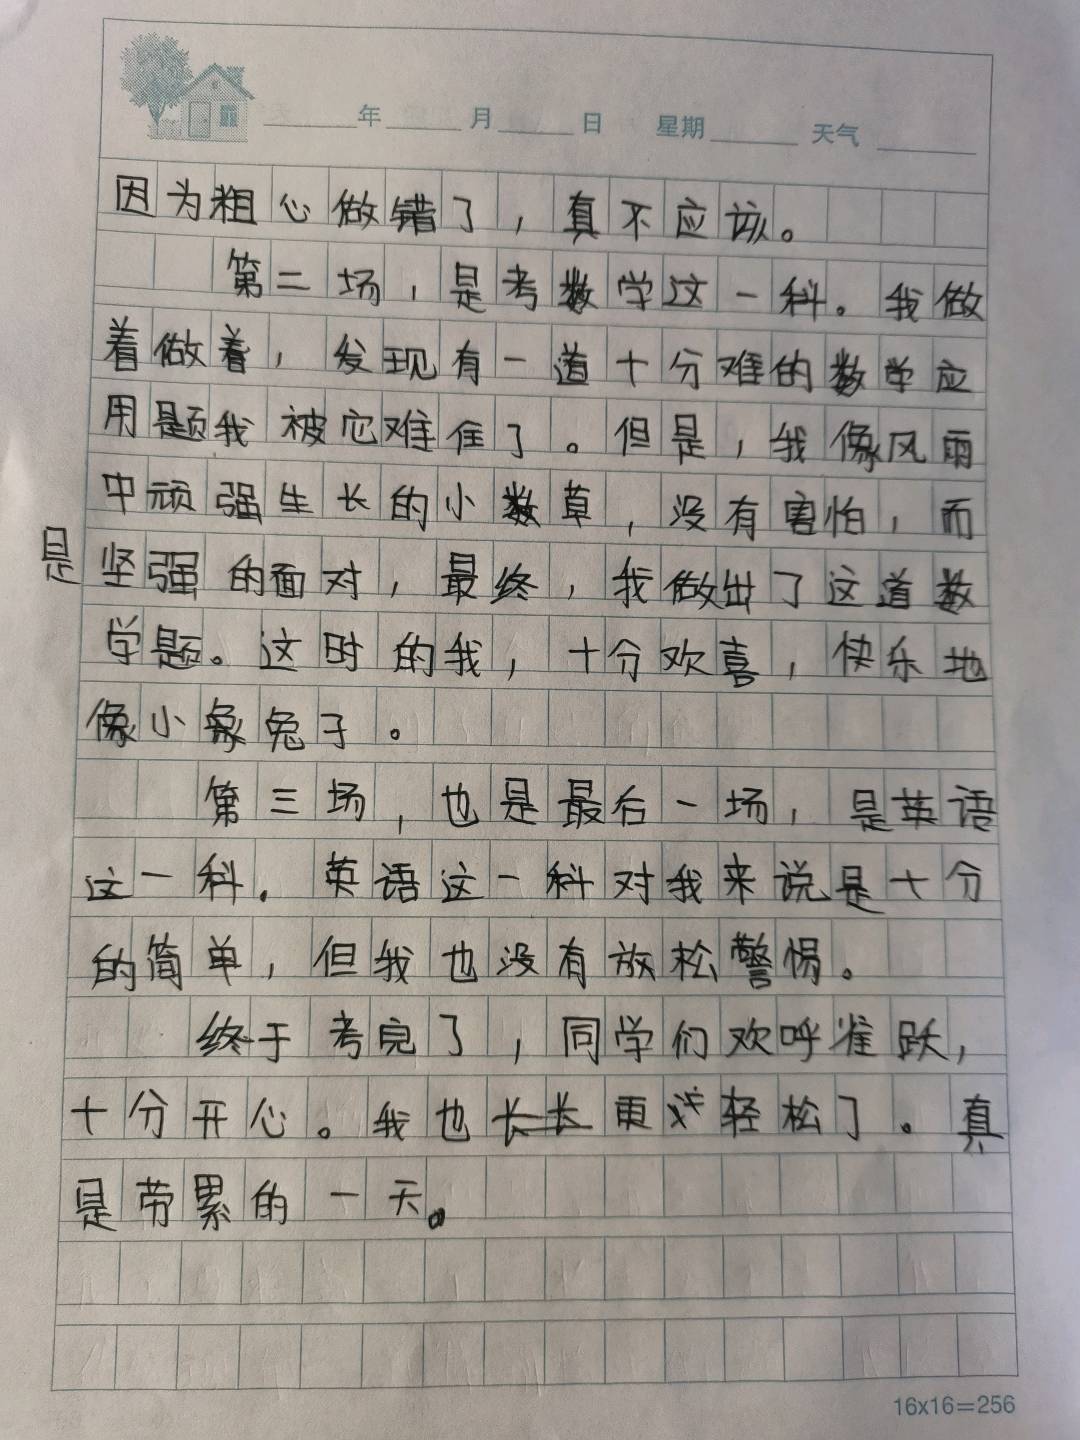 年 月 日 星期 天气
因为粗心做错了，真不应该。
第二场，是考数学这一科。我做
着做着，发现有一道十分难的数学应
用题我被它难住了。但是，我像风雨
中顽强生长的小数草，没有害怕，而
是坚强的面对，最终，我做出了这道数
学题。这时的我，十分欢喜，快乐地
像小象兔子。
第三场，也是最后一场，是英语
这一科。英语这一科对我来说是十分
的简单，但我也没有放松警惕。
终于考完了，同学们欢呼雀跃，
十分开心。我也长长更轻松了。真
是劳累的一天。
16x16=256